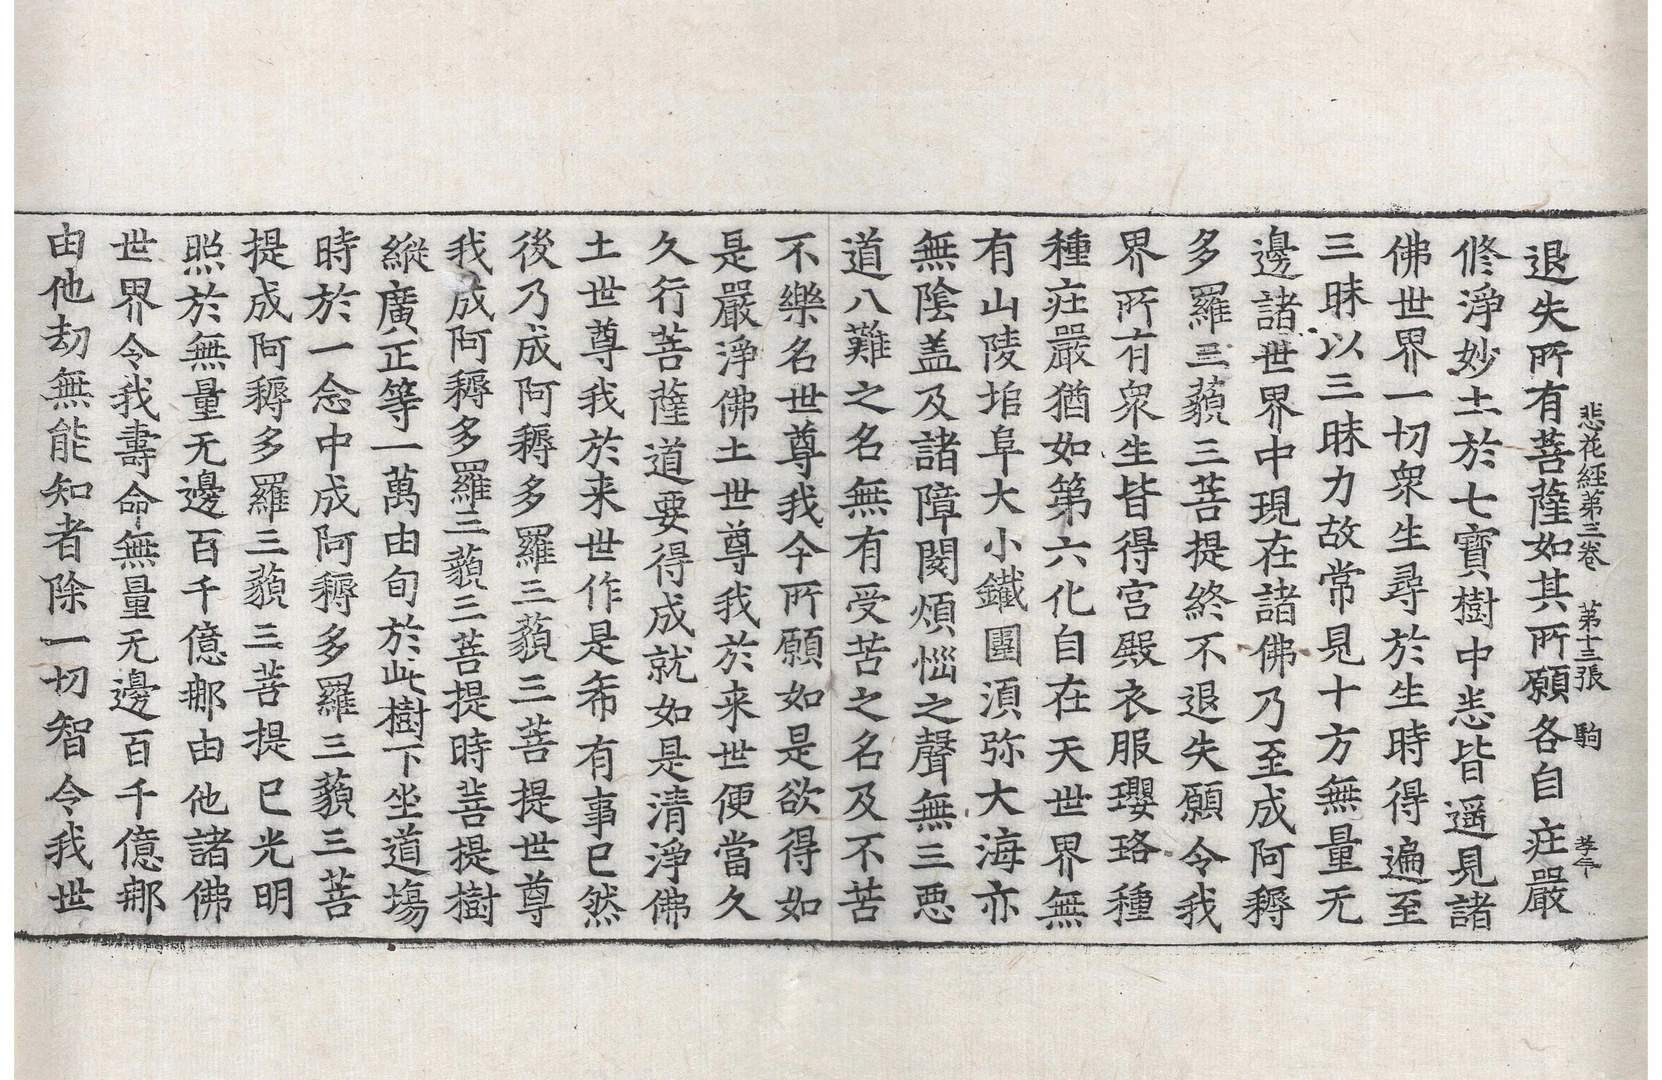 悲花經第三卷　第十三張　駒　孝年
退失所有菩薩如其所願各自庄嚴
修淨妙土於七寶樹中悉皆遥見諸
佛世界一切衆生尋於生時得遍至
三昧以三昧力故常見十方無量无
邊諸世界中現在諸佛乃至成阿耨
多羅三藐三菩提終不退失願令我
界所有衆生皆得宫殿衣服瓔珞種
種庄嚴猶如第六化自在天世界無
有山陵埳阜大小鐵圍湏弥大海亦
無隂盖及諸障閡煩惱之聲無三悪
道八難之名無有受苦之名及不苦
不樂名世尊我今所願如是欲得如
是嚴淨佛土世尊我於来世便當久
久行菩薩道要得成就如是清淨佛
土世尊我於来世作是希有事已然
後乃成阿耨多羅三藐三菩提世尊
我成阿耨多羅三藐三菩提時菩提樹
縱廣正等一萬由旬於此樹下坐道場
時於一念中成阿耨多羅三藐三菩
提成阿耨多羅三藐三菩提已光明
照於無量无邊百千億那由他諸佛
世界令我壽命無量无邊百千億那
由他劫無能知者除一切智令我世